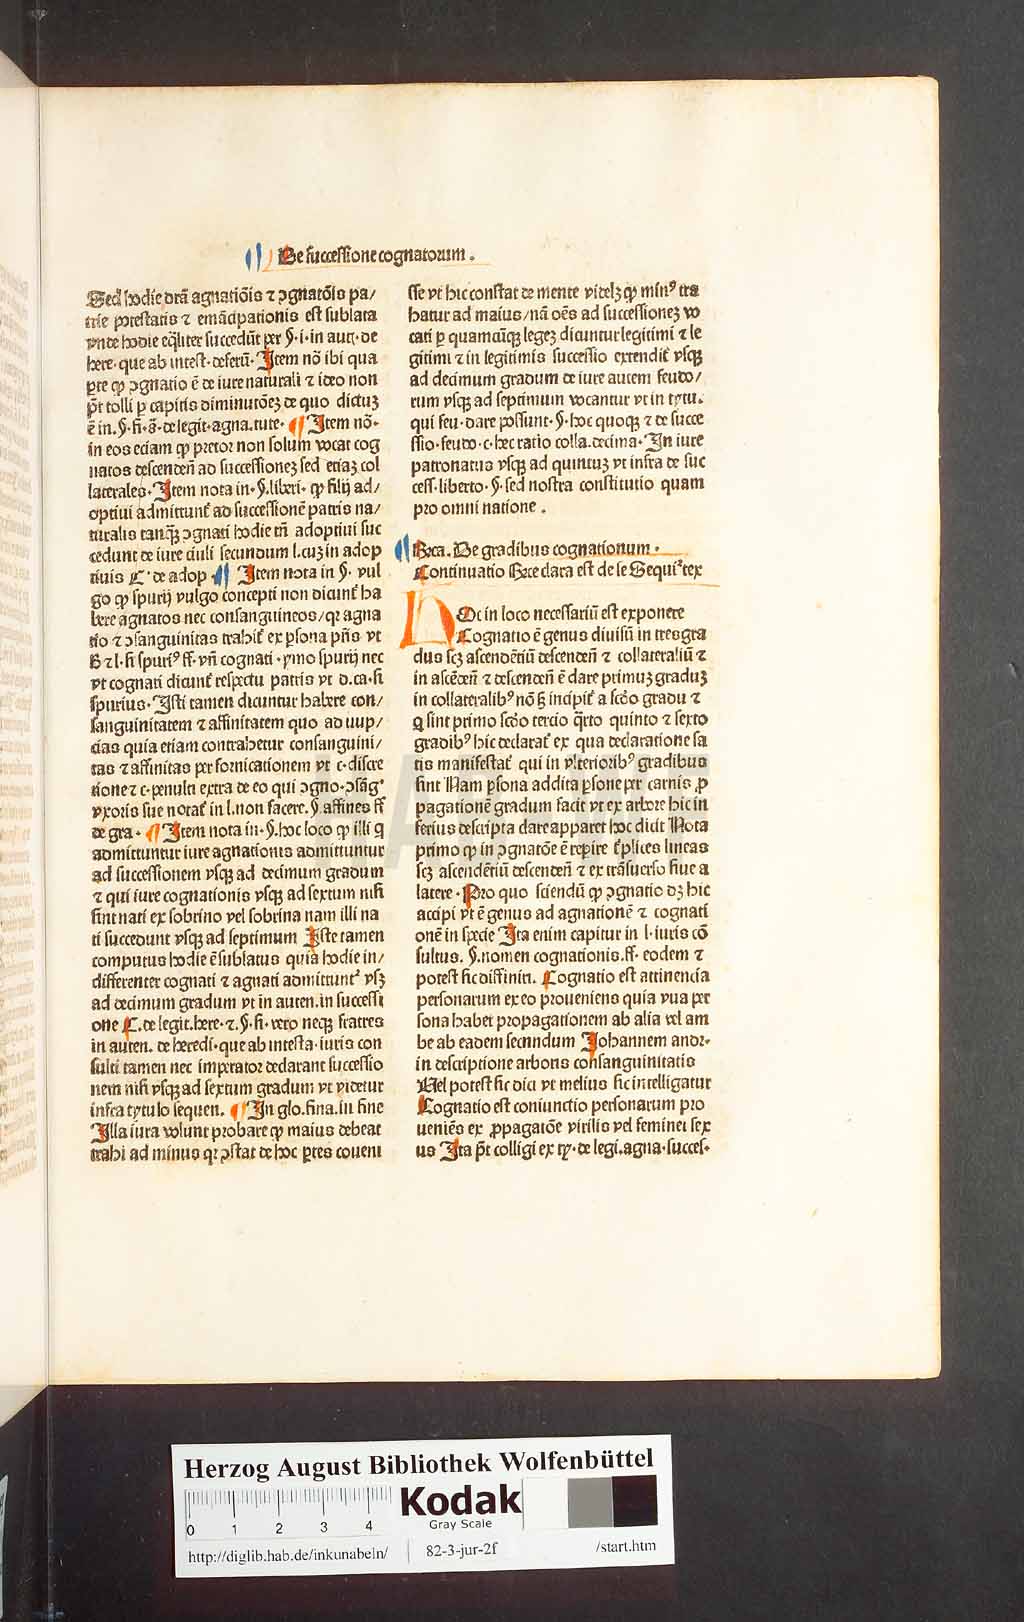 De successione cognatorum .
Sed hodie drā agnatiōis ⁊ ꝯgnatōis pa/
trie potestatis ⁊ emācipationis est sublata
vnde hodie eq̄liter succedūt per §·i·in aut̄· de
here· que ab intest·deferū̄· Item nō ibi qua
ꝑte ꝙ ꝯgnatio ē de iure naturali ⁊ ideo non
pōt tolli ꝑ capitis diminutōeꝫ de quo dictuꝫ
ē in·§·fi·s̄·de legit·agna·tute· ¶ Item nō·
in eos eciam ꝙ pretor non solum vocat cog
natos descendēn ad successioneꝫ sed etiaꝫ col
laterales· Item nota in·§·liberi· ꝙ filij ad/
optiui admittunt᷑ ad successionē patris na/
turalis tanꝗ̄ ꝯgnati hodie tn̄ adoptiui suc
cedunt de iure ciuli secundum l.cuꝫ in adop
tiuis C· de adop · ¶ Item nota in §· vul
go ꝙ spurij vulgo concepti non dicunt᷑ ha
bere agnatos nec consanguineos/ qꝛ agna
tio ⁊ ꝯsanguinitas trahit᷑ ex ꝑsona pr̄is vt
ß ⁊ l·si spuriꝰ ff· vn̄ cognati · ymo spurij nec
vt cognati dicunt᷑ respectu patris vt d.ca·si
spurius· Isti tamen dicuntur habere con/
sanguinitatem ⁊ affinitatem quo ad nup/
cias quia etiam contrahetur consanguini/
tas ⁊ affinitas per fornicationem vt c·discre
tione ⁊ c·penulti extra de eo qui ꝯgno·ꝯsāg·
vxoris sue notat᷑ in l.non facere. §.affines ff
de gra· ¶ Item nota in·§·hoc loco ꝙ illi q̄
admittuntur iure agnationis admittuntur
ad successionem vsqꝫ ad decimum gradum
⁊ qui iure cognationis vsqꝫ ad sextum nisi
sint nati ex sobrino vel sobrina nam illi na
ti succedunt vsqꝫ ad septimum Iste tamen
computus hodie ē sublatus quia hodie in/
differenter cognati ⁊ agnati admittunt᷑ vsqꝫ
ad decimum gradum vt in auten.in successi
one C.de legit.here·⁊.§·si·vero neqꝫ fratres
in auten. de heredi·que ab intesta·iuris con
sulti tamen nec imperator declarant successio
nem nisi vsqꝫ ad sextum gradum vt videtur
infra tytulo sequen. ¶ In glo.fina.in fine
Illa iura volunt probare ꝙ maius debeat
trahi ad minus qꝛ ꝯstat de hoc ꝑtes coueni
sse vt hic constat de mente videlꝫ ꝙ minꝰ tra
hatur ad maius/nā oēs ad successioneꝫ vo
cati ꝑ quamcūqꝫ legeꝫ dicuntur legitimi ⁊ le
gitimi ⁊ in legitimis successio extendit᷑ vsqꝫ
ad decimum gradum de iure autem feudo/
rum vsqꝫ ad septimum vocantur vt in tytu.
qui feu·dare possunt·§·hoc quoqꝫ ⁊ de succe
ssio·feudo·c·hec ratio colla.decima· In iure
patronatus vsqꝫ ad quintuꝫ vt infra de suc
cess·liberto·§·sed nostra constitutio quam
pro omni natione .
¶ Bꝛca. De gradibus cognationum ·
Continuatio Bꝛece clara est de se Sequit᷑ tex
HOc in loco necessariū est exponere
Cognatio ē genus diuisū in tres gra
dus scꝫ ascendētiū descendēn ⁊ collateraliū ⁊
in ascēdēn ⁊ descendēn ē dare primuꝫ graduꝫ
in collateralibꝰ nō sꝫ incipit᷑ a scd̄o gradu ⁊
q̄ sint primo scd̄o tercio q̄rto quinto ⁊ sexto
gradibꝰ hic declarat᷑ ex qua declaratione sa
tis manifestat᷑ qui in vlterioribꝰ gradibus
sint Nam ꝑsona addita ꝑsone per carnis ꝓ
pagationē gradum facit vt ex arbore hic in
ferius descripta clare apparet hoc dicit Nota
primo ꝙ in ꝯgnatōe ē repire t᷑plices lineas
scꝫ ascendētiū descendēn ⁊ ex trāsuerso siue a
latere · Pro quo sciendū ꝙ ꝯgnatio dꝫ hic
accipi vt ē genus ad agnationē ⁊ cognati
onē in specie Ita enim capitur in l·iuris cō
sultus. §.nomen cognationis.ff· eodem ⁊
potest sic diffiniri. Cognatio est attinencia
personarum ex eo proueniens quia vna per
sona habet propagationem ab alia vel am
be ab eadem secundum Johannem andr·
in descriptione arboris consanguinitatis
Uel potest sic dici vt melius sic intelligatur
Cognatio est coniunctio personarum pro
ueniēs ex ꝓpagatōe virilis vel feminei sex
us Ita pōt colligi ex ty·de legi.agna·succes·
Herzog August Bibliothek Wolfenbüttel
0 1 2 3 4
Kodak
Gray Scale
http://diglib.hab.de/inkunabeln/ 82-3-jur-2f /start.htm